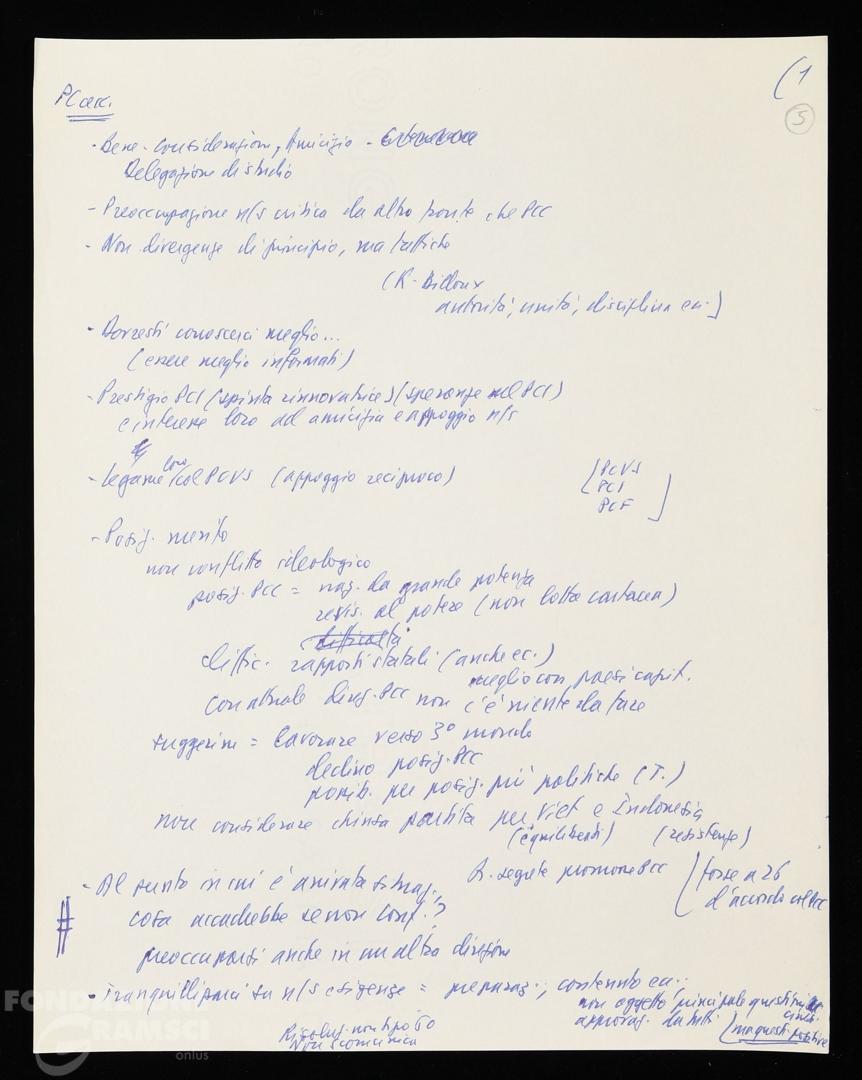 (1
5
PC cec.
- Bene - considerazioni, Amicizia -
Delegazione di studio
- Preoccupazione n/s critica da altro fronte che PCC
- Non divergenze di principio, ma tattiche
(R. Billoux
autorità, unità, disciplina ecc.)
- Dovresti conoscerci meglio...
(essere meglio informati)
- Prestigio PCI (spinta rinnovatrice) (speranze nel PCI)
e interesse loro ad amicizia e appoggio n/s
- legame loro col PCUS (appoggio reciproco)
[PCUS
PCI
PCF ]
- Posiz. merito
non conflitto ideologico
posiz. PCC = naz. da grande potenza
revis. al potere (non lotta cartacea)
difficoltà
diffic. rapporti statali (anche ec.)
meglio con paesi capit.
Con attuale dirig. PCC non c'è niente da fare
suggerim = lavorare verso 3° mondo
declino posiz. PCC
possib. per posiz. più politiche (T.)
non considerare chiusa partita per Viet e Indonesia
(equilibristi) (resistenze)
- Al punto in cui è arrivata situaz.,
R. segrete promosse PCC (forse a 26
d'accordo col PCC
# cosa accadrebbe se non conf.?
preoccuparsi anche in un'altra direzione
- Tranquillizzarci su n/s esigenze = preparaz., contenuto ecc.
non oggetto principale questione
cinese
approvaz. da tutti [ma questi positive
Risoluz. non tipo 60
Non scomunica
FONDAZIONE
GRAMSCI
onlus